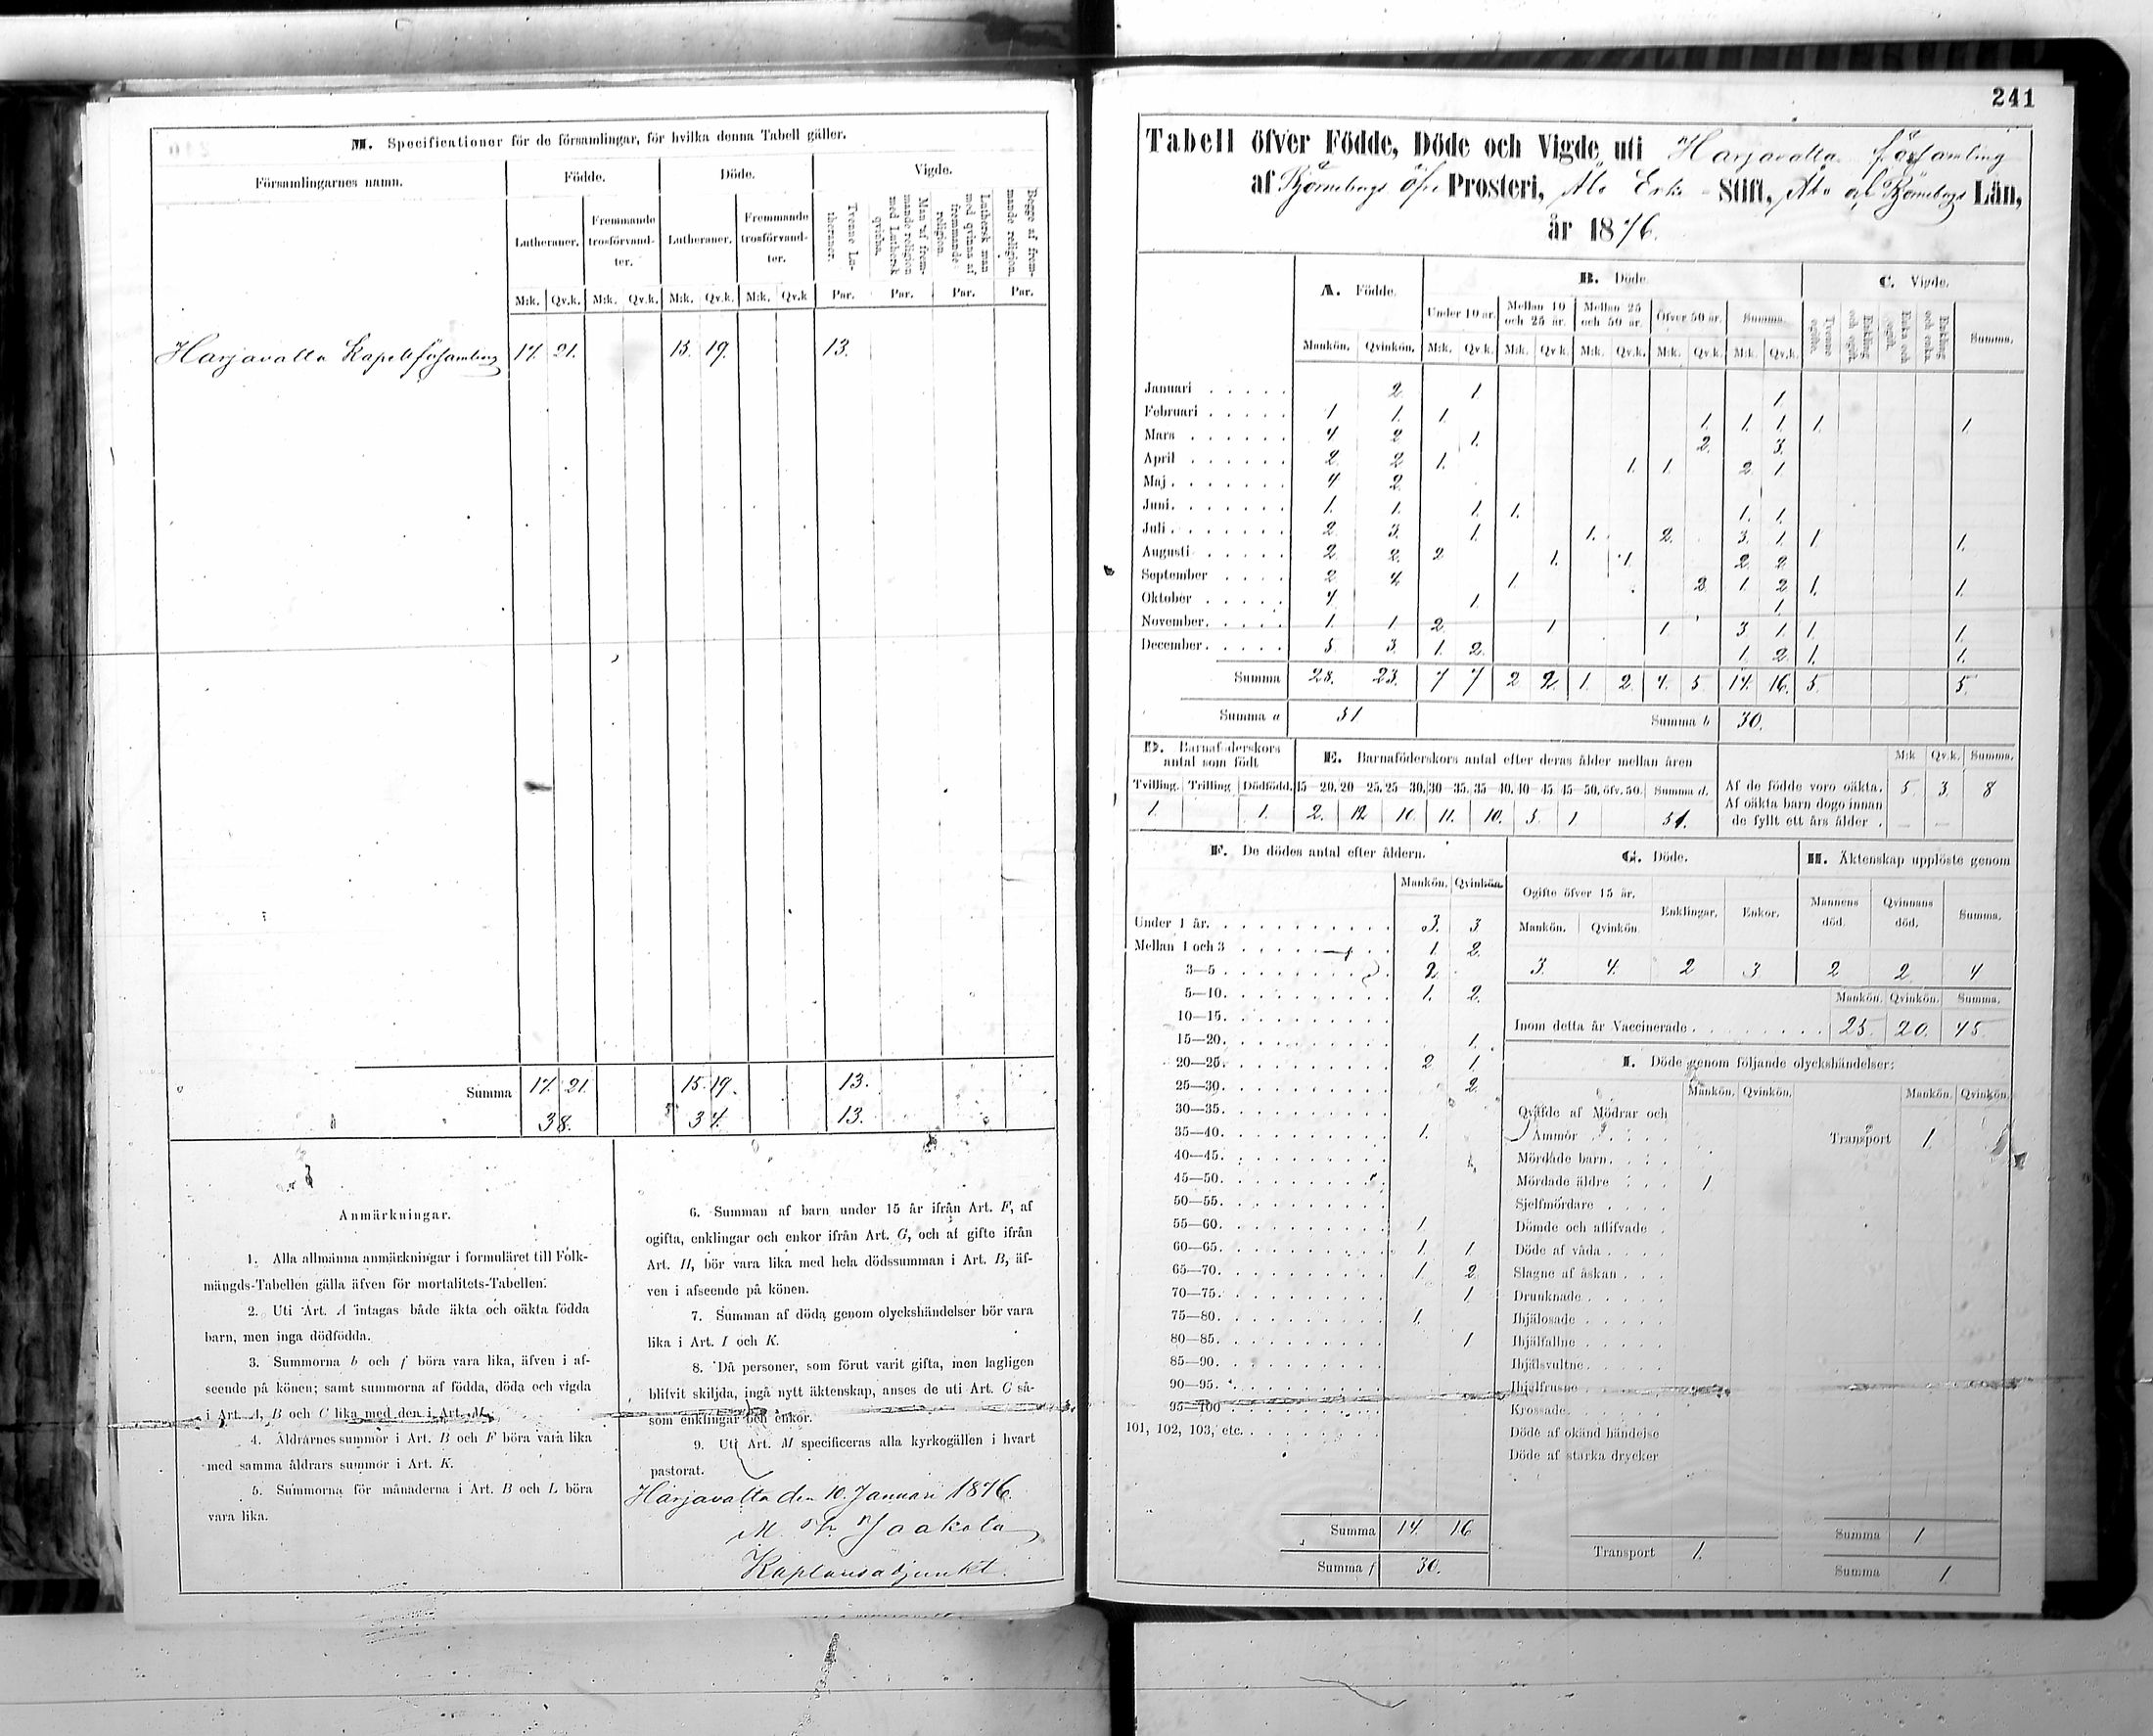 M. Specificationer för de församlingar, för hvilka denna Tabell gäller.
Församlingarnes namn. Födde. Döde. Vigde.
Lutheraner. Fremmande trosförvandter. Lutheraner. Fremmande trosförvandter. Tvenne Lutheraner. Man af fremmande religion med Luthersk qvinna. Luthersk man med qvinna af fremmande religion. Begge af fremmande religion.
M:k. Qv.k. M:k. Qv.k. M:k. Qv.k. M:k. Qv.k Par. Par. Par. Par.
Harjavalta Kapellförsamling 17. 21. 15. 19. 13.
Summa 17. 21. 15. 19. 13.
38. 34. 13.
Anmärkningar.
1. Alla allmänna anmärkningar i formuläret till Folk-
mängds-Tabellen gälla äfven för mortalitets-Tabellen.
2. Uti Art. A intagas både äkta och oäkta födda
barn, men inga dödfödda.
3. Summorna b och f böra vara lika, äfven i af-
seende på könen; samt summorna af födda, döda och vigda
i Art. A, B och C lika med den i Art. M.
4. Åldrarnes summor i Art. B och F böra vara lika
med samma åldrars summor i Art. K.
5. Summorna för månaderna i Art. B och L böra
vara lika.
6. Summan af barn under 15 år ifrån Art. F, af
ogifta, enklingar och enkor ifrån Art. G, och af gifte ifrån
Art. H, bör vara lika med hela dödssumman i Art. B, äf-
ven i afseende på könen.
7. Summan af döda genom olyckshändelser bör vara
lika i Art. I och K.
8. Då personer, som förut varit gifta, men lagligen
blifvit skiljda, ingå nytt äktenskap, anses de uti Art. C så-
som enklingar och enkor.
9. Uti Art. M specificeras alla kyrkogällen i hvart
pastorat.
Harjavalta den 10. Januari 1876.
Jaakola
Kaplansadjunkt.
241
Tabell öfver Födde, Döde och Vigde uti Harjavalta församling
af Björneborgs öfre Prosteri, Åbo Erke Stift, Åbo och Björneborgs Län,
år 1876.
A. Födde. B. Döde. C. Vigde.
Under 10 år. Mellan 10 och 25 år. Mellan 25 och 50 år. Öfver 50 år. Summa. Tvenne ogifta. Enkling och ogift. Enka och ogift. Enkling och enka. Summa.
Mankön. Qvinkön. M:k. Qv.k. M:k. Qv.k. M:k. Qv.k. M:k. Qv.k. M:k. Qv.k.
Januari 2 1 1.
Februari 1 1. 1 1. 1. 1 1. 1.
Mars 4 2 1. 2. 3.
April 2. 2 1. 1. 1. 2 1
Maj 4 2
Juni 1. 1. 1 1. 1. 1.
Juli 2 3. 1 1. 2. 3. 1 1 1.
Augusti 2 2 2 1. 1. 2 2
September 2 4 1. 2 1 2 1. 1.
Oktober 4 1. 1.
November 1. 1 2 1 1 3 1 1 1.
December 3 3. 1. 2. 1. 2. 1. 1.
Summa 28. 23. 7 7 2 2. 1. 2. 4. 5 14. 16. 5. 5.
Summa a 51 Summa b 30.
D. Barnaföderskors antal som födt E. Barnaföderskors antal efter deras ålder mellan åren M:k Qv.k. Summa.
Tvilling. Trilling Dödfödd. 15—20. 20—25. 25—30. 30—35. 35—40. 40—45 45—50. öfv. 50. Summa d.
1. 1. 2. 12 10. 11. 10. 5. 1 51.
Af de födde voro oäkta. 5. 3. 8
Af oäkta barn dogo innan
de fyllt ett års ålder . — —
F. De dödes antal efter åldern.
Mankön. Qvinkön.
Under 1 år. 3. 3
Mellan 1 och 3 1. 2.
3—5 2.
5—10. 1. 2.
10—15.
15—20. 1.
20—25. 2 1
25—30. 2.
30—35.
35—40. 1.
40—45.
45—50.
50—55.
55—60. 1.
60—65. 1. 1
65—70. 1 2
70—75. 1
75—80. 1.
80—85. 1
85—90.
90—95.
95—100
101, 102, 103, etc.
Summa 14. 16
Summa f 30.
G. Döde.
Ogifte öfver 15 år. Enklingar. Enkor.
Mankön. Qvinkön.
3. 4. 2 3
H. Äktenskap upplöste genom
Mannens död. Qvinnans död. Summa.
2 2 4
Mankön. Qvinkön. Summa.
Inom detta år Vaccinerade 25. 20. 45.
I. Döde genom följande olyckshändelser:
Mankön. Qvinkön. Mankön. Qvinkön.
Qväfde af Mödrar och
Ammor
Transport 1.
Mördade barn.
Mördade äldre 1
Sjelfmördare
Dömde och aflifvade
Döde af våda
Slagne af åskan
Drunknade
Ihjälosade
Ihjälfallne
Ihjälsvultne.
Ihjälfrusne
Krossade
Döde af okänd händelse
Döde af starka drycker
Transport 1.
Summa 1
Summa 1